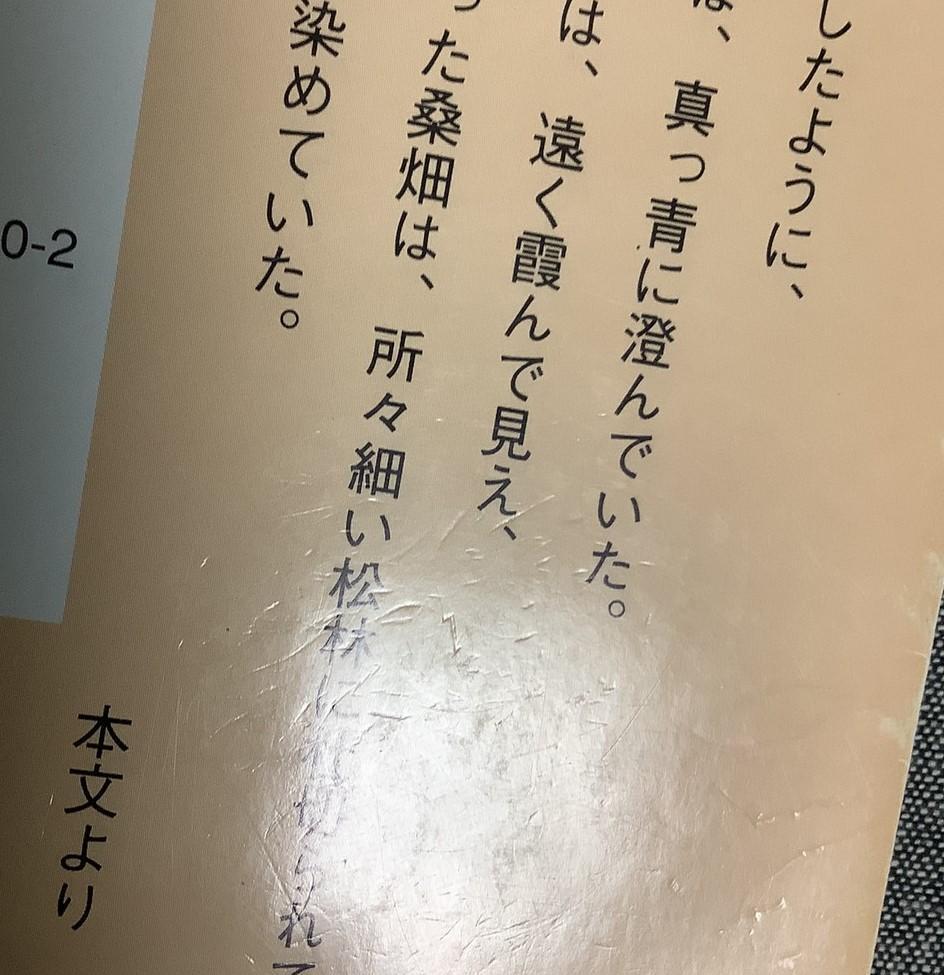 したように、
は、真っ青に澄んでいた。
は、遠く霞んで見え、
った桑畑は、所々細い松林に
られて
染めていた。
本文より
0-2